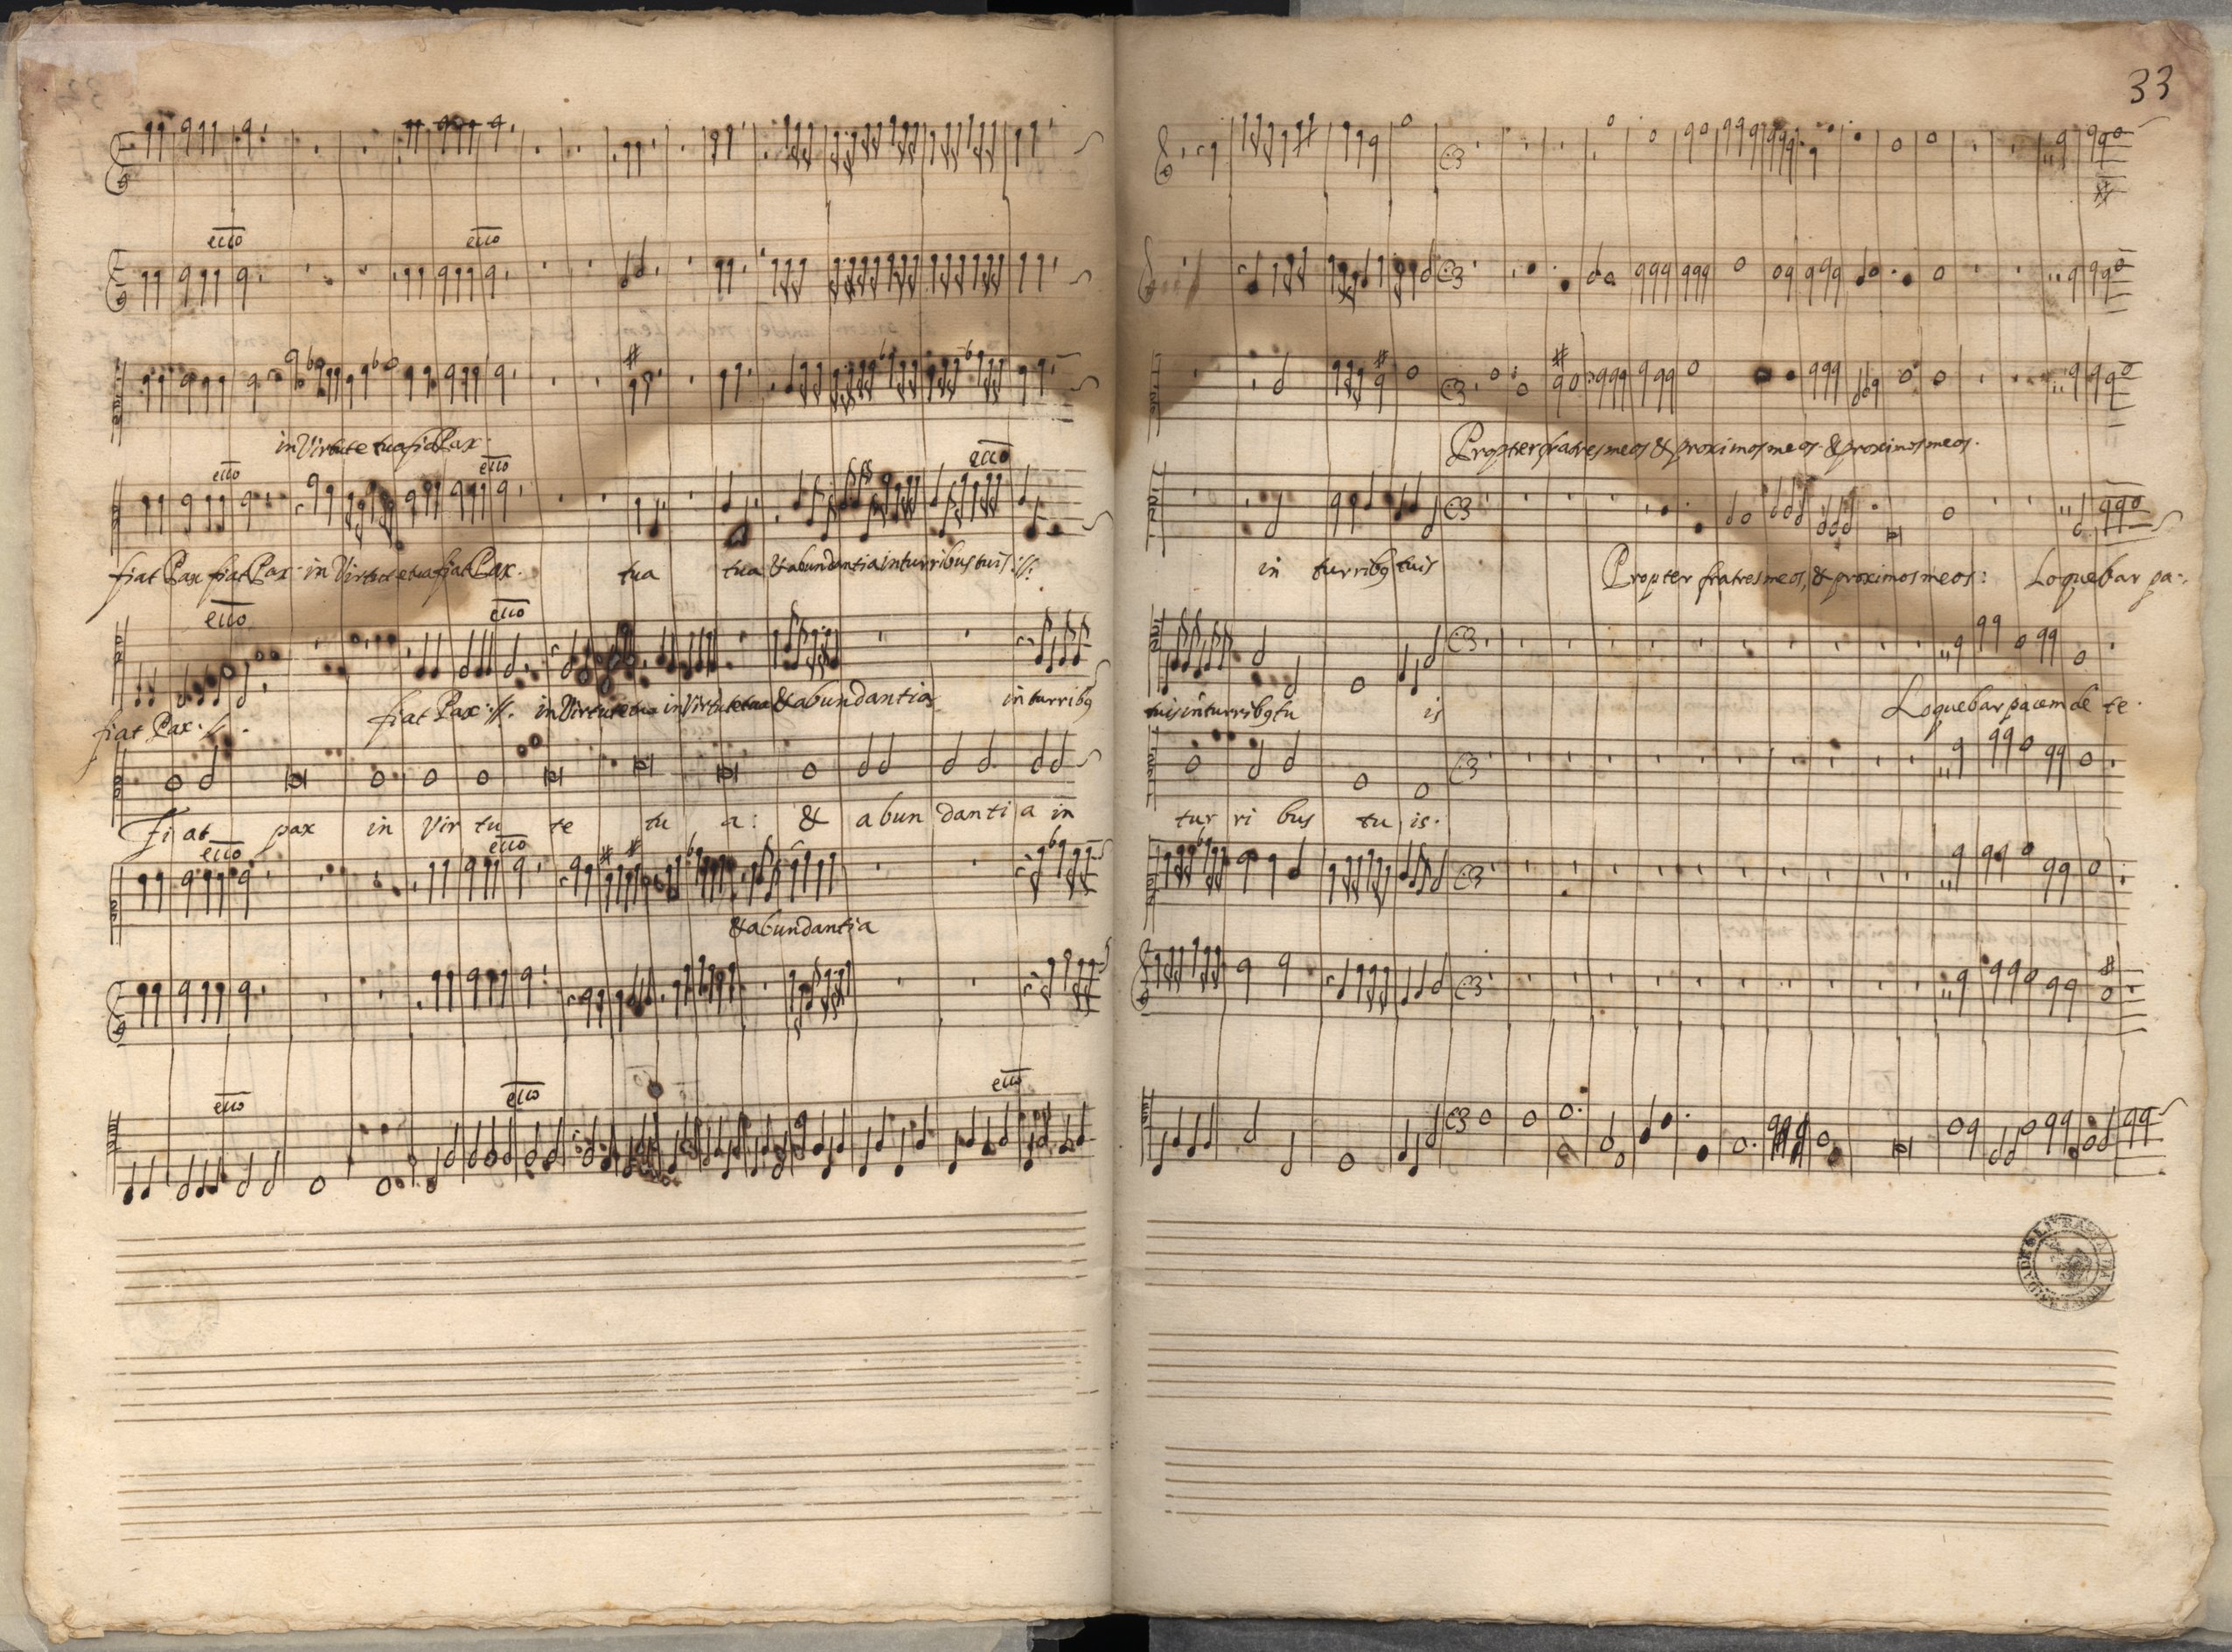 33
ecco ecco
in Virtute tua fiat Pax.
ecco ecco ecco
fiat Pax fiat Pax: in Virtute tua fiat Pax. tua tua & abundantia in turribus tuis
ecco ecco
fiat Pax fiat Pax in Virtute tua in Virtute tua & abundantia in turribꝰ
Fi at pax in Vir tu te tu a: & abun danti a in
ecco ecco
& abundantia
ecco ecco ecco
Propter fratres meos & proximos meos & proximos meos.
in turribꝰ tuis Propter fratres meos, & proximos meos: Loquebar pa-
tuis in turribꝰ tu is Loquebar pacem de te.
tur ri bus tu is.